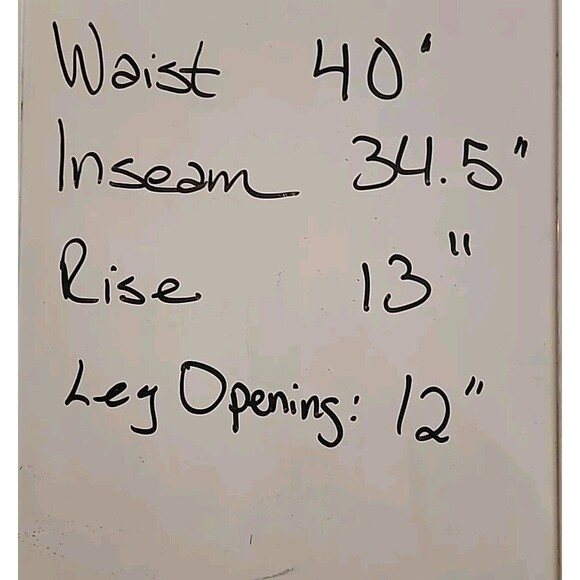 Waist 40'
Inseam 34.5"
Rise 13"
Leg Opening: 12"